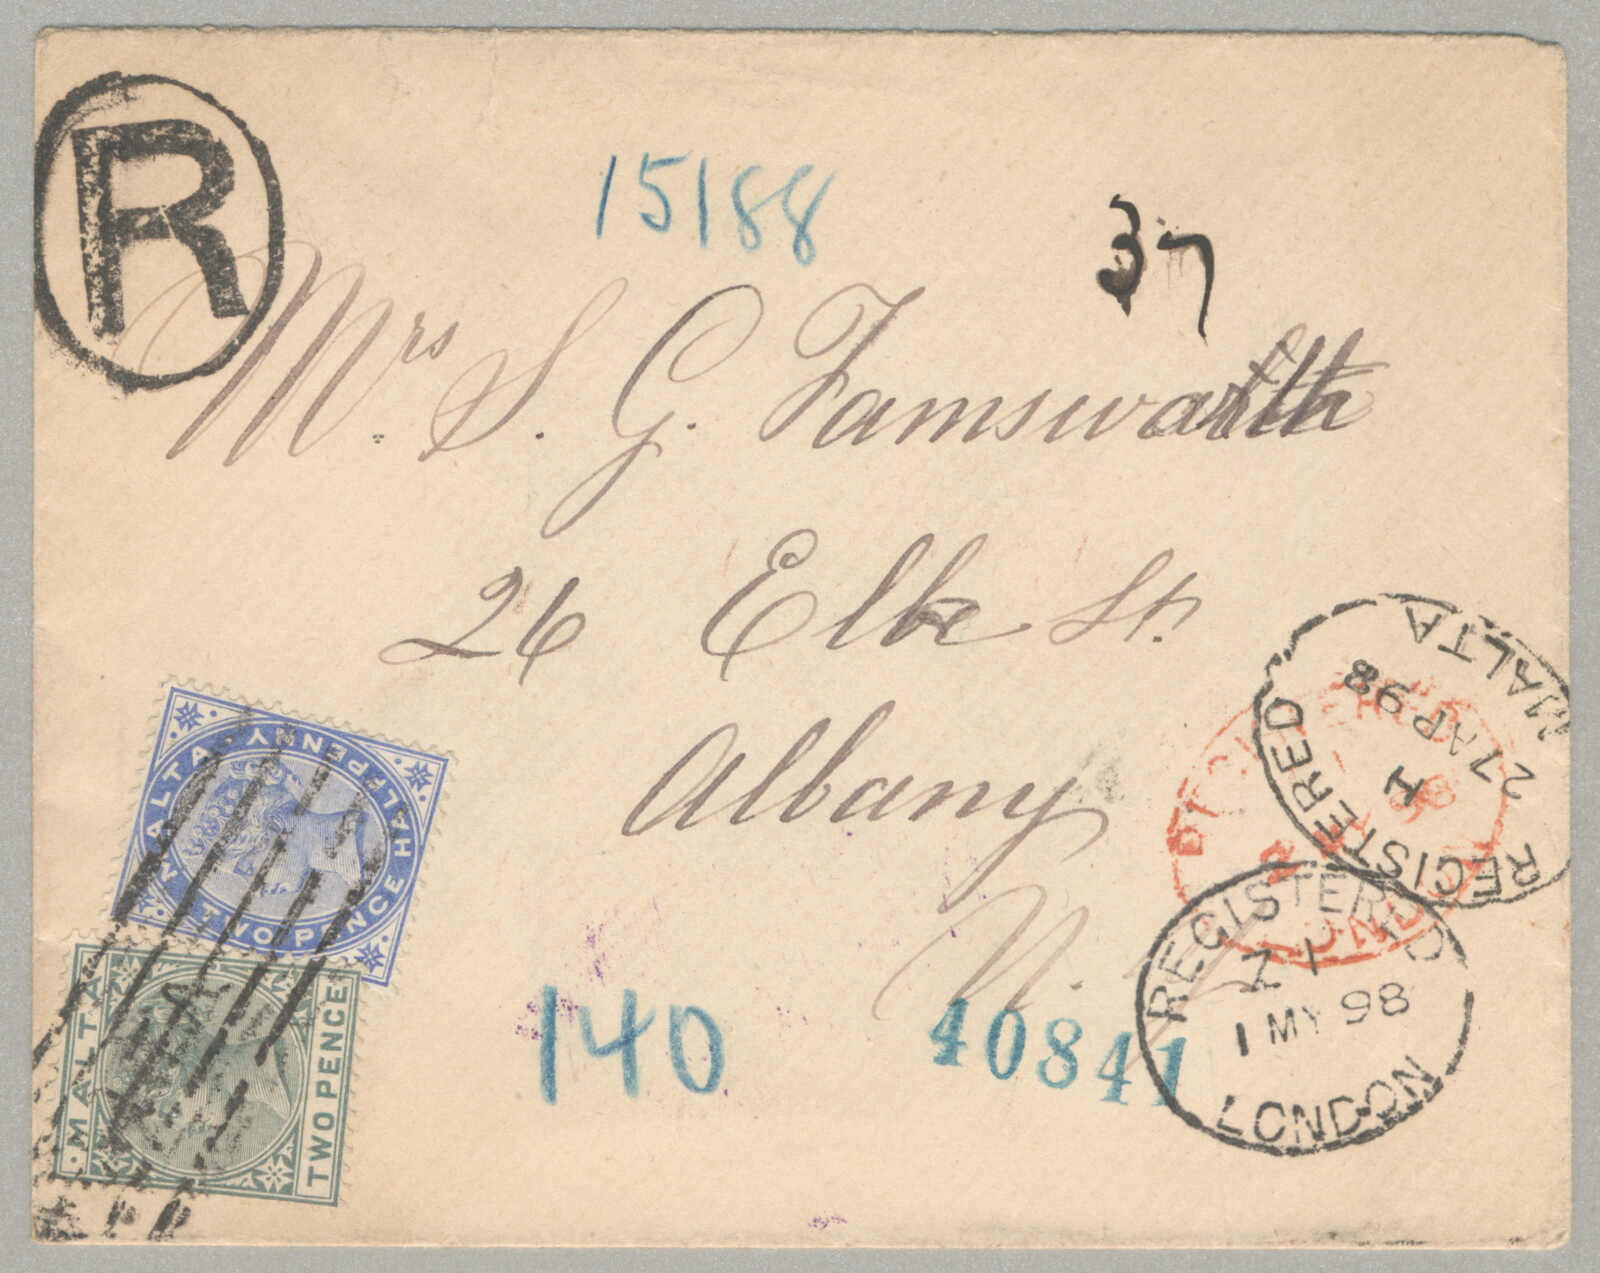 R
15188
37
Mrs S. G. Farnsworth
26 Elk St.
Albany
N.
140
40841
MALTA · TWO PENCE HALFPENNY
MALTA
TWO PENCE
REGISTERED
H
27 AP 98
MALTA
REGISTERED
Z 1
1 MY 98
LONDON
98
LONDON